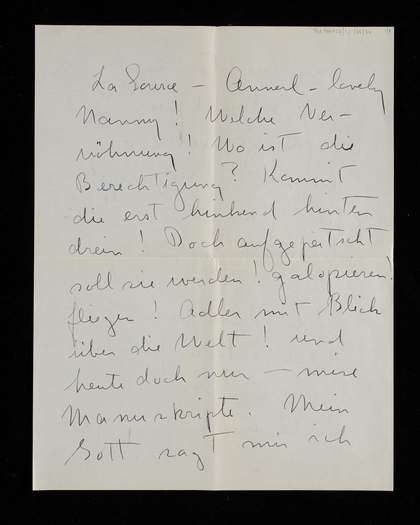 La Source – Annerl – lovely
Nanny! Welche Ver-
wöhnung! Wo ist die
Berechtigung? Kommt
die erst hinkend hinten
drein! Doch aufgepeitscht
soll sie werden! galopieren!
fliegen! Adler mit Blick
über die Welt! und
heute doch nur – miese
Manuskripte. Mein
Gott sagt mir ich